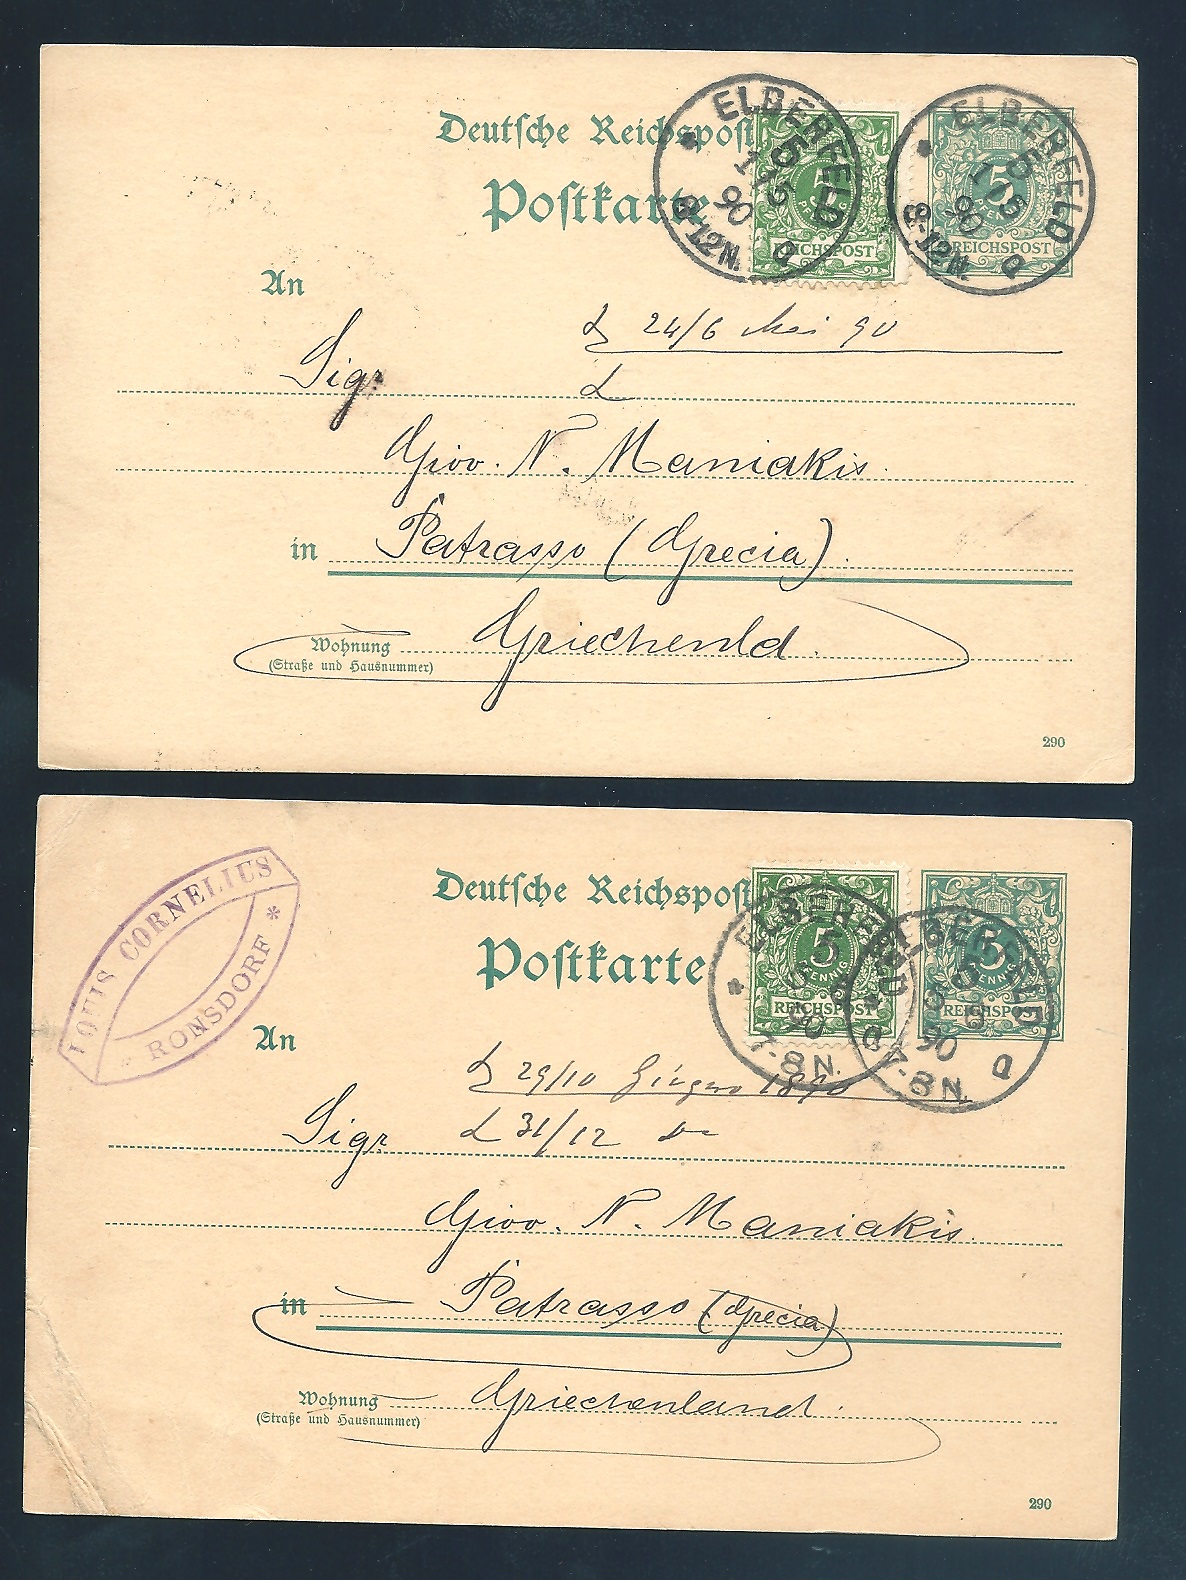 Deutsche Reichspost
Postkarte
ELBERFELD
5
11 5
90
8-12N.
a
5
PFENNIG
REICHSPOST
ELBERFELD
5
11 5
90
8-12N.
a
5
PFENNIG
REICHSPOST
An
24/6 Mai 90
Sigr
Giov. N. Maniakis.
in Patrasso (Grecia).
Wohnung Griechenld.
(Straße und Hausnummer)
290
LOUIS CORNELIUS
RONSDORF *
Deutsche Reichspost
Postkarte
ELBERFELD
90
7-8N.
5
PFENNIG
REICHSPOST
ELBERFELD
90
7-8N.
a
5
PFENNIG
REICHSPOST
An
29/10 Giugno 1890
Sigr 31/12
Giov. N. Maniakis.
in Patrasso (Grecia)
Wohnung Griechenland.
(Straße und Hausnummer)
290